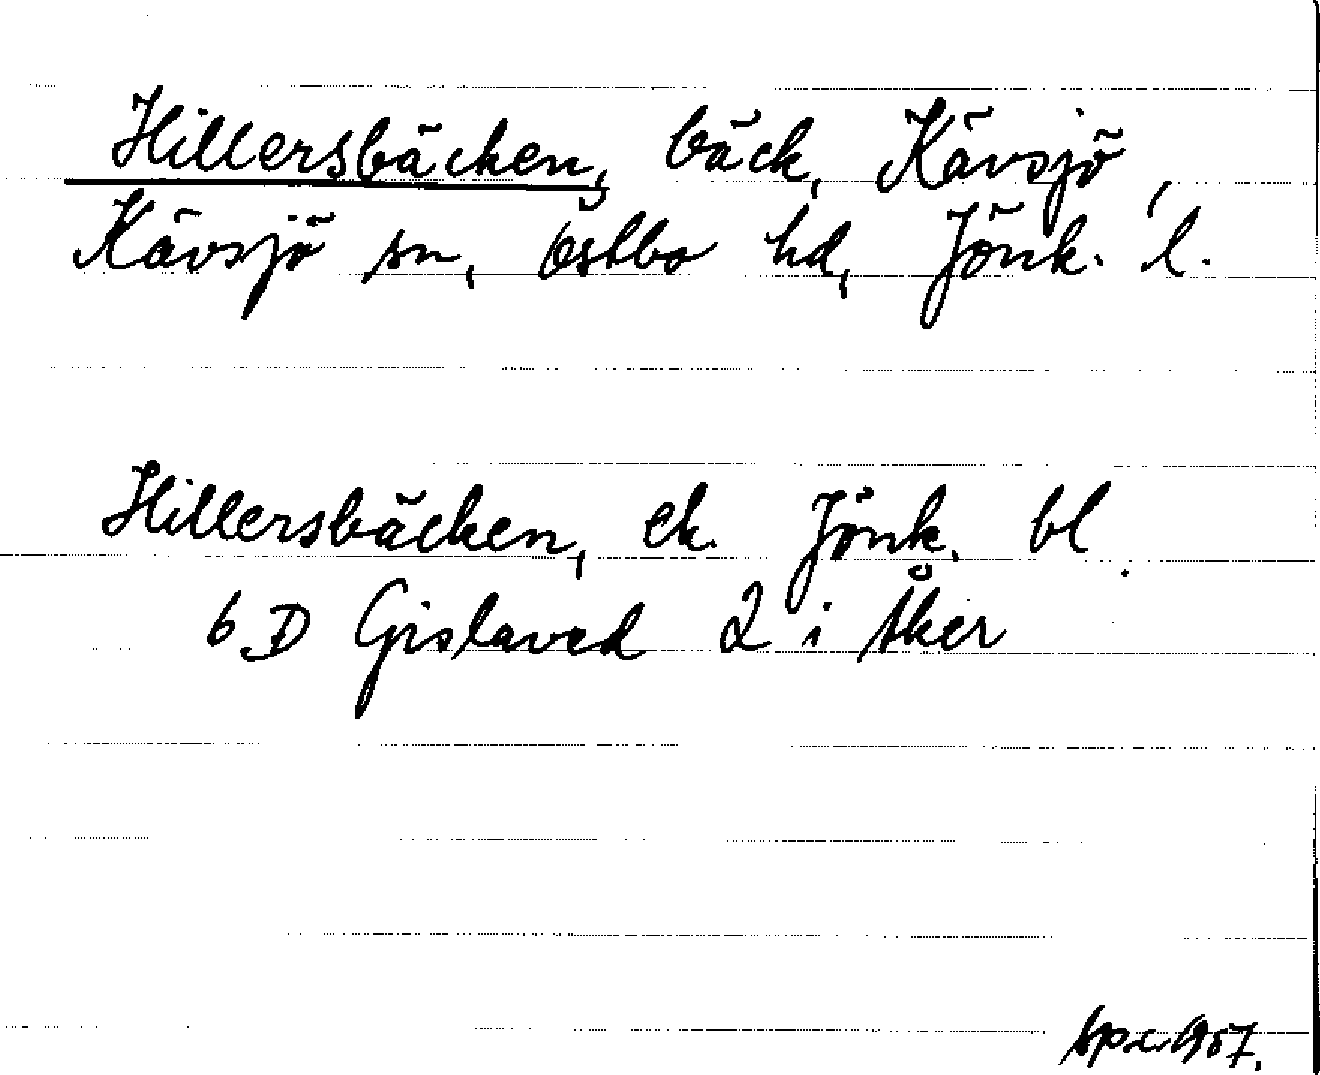 Hillersbäcken, bäck, Kävsjö,
Kävsjö sn, Östbo hd, Jönk. l.
Hillersbäcken, ek. Jönk. bl.
6 D Gislaved 2 i Åker
1957.